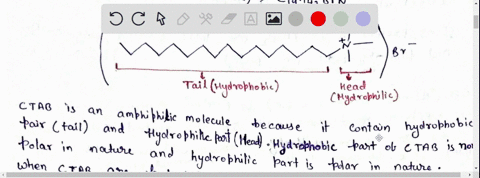 N+
Br-
Tail (Hydrophobic)
Head
(Hydrophilic)
CTAB is an amphiphilic molecule because it contain hydrophobic
pair (tail) and Hydrophilic part (Head). Hydrophobic part of CTAB is non
polar in nature and hydrophilic part is polar in nature.
when CTAB are